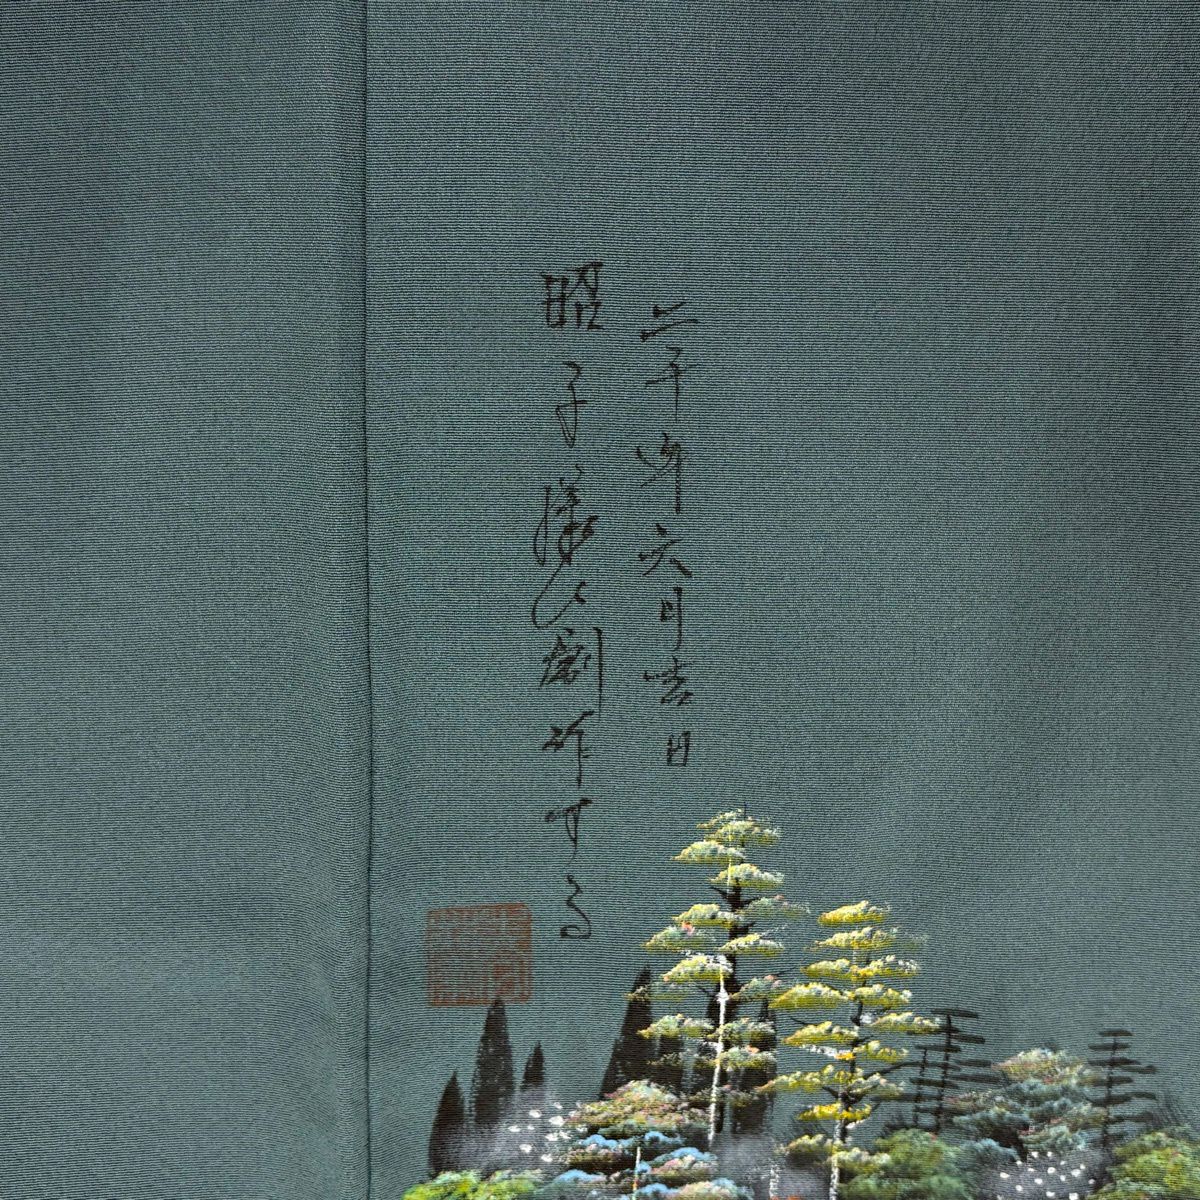 二千年六月吉日
昭子様へ創作する